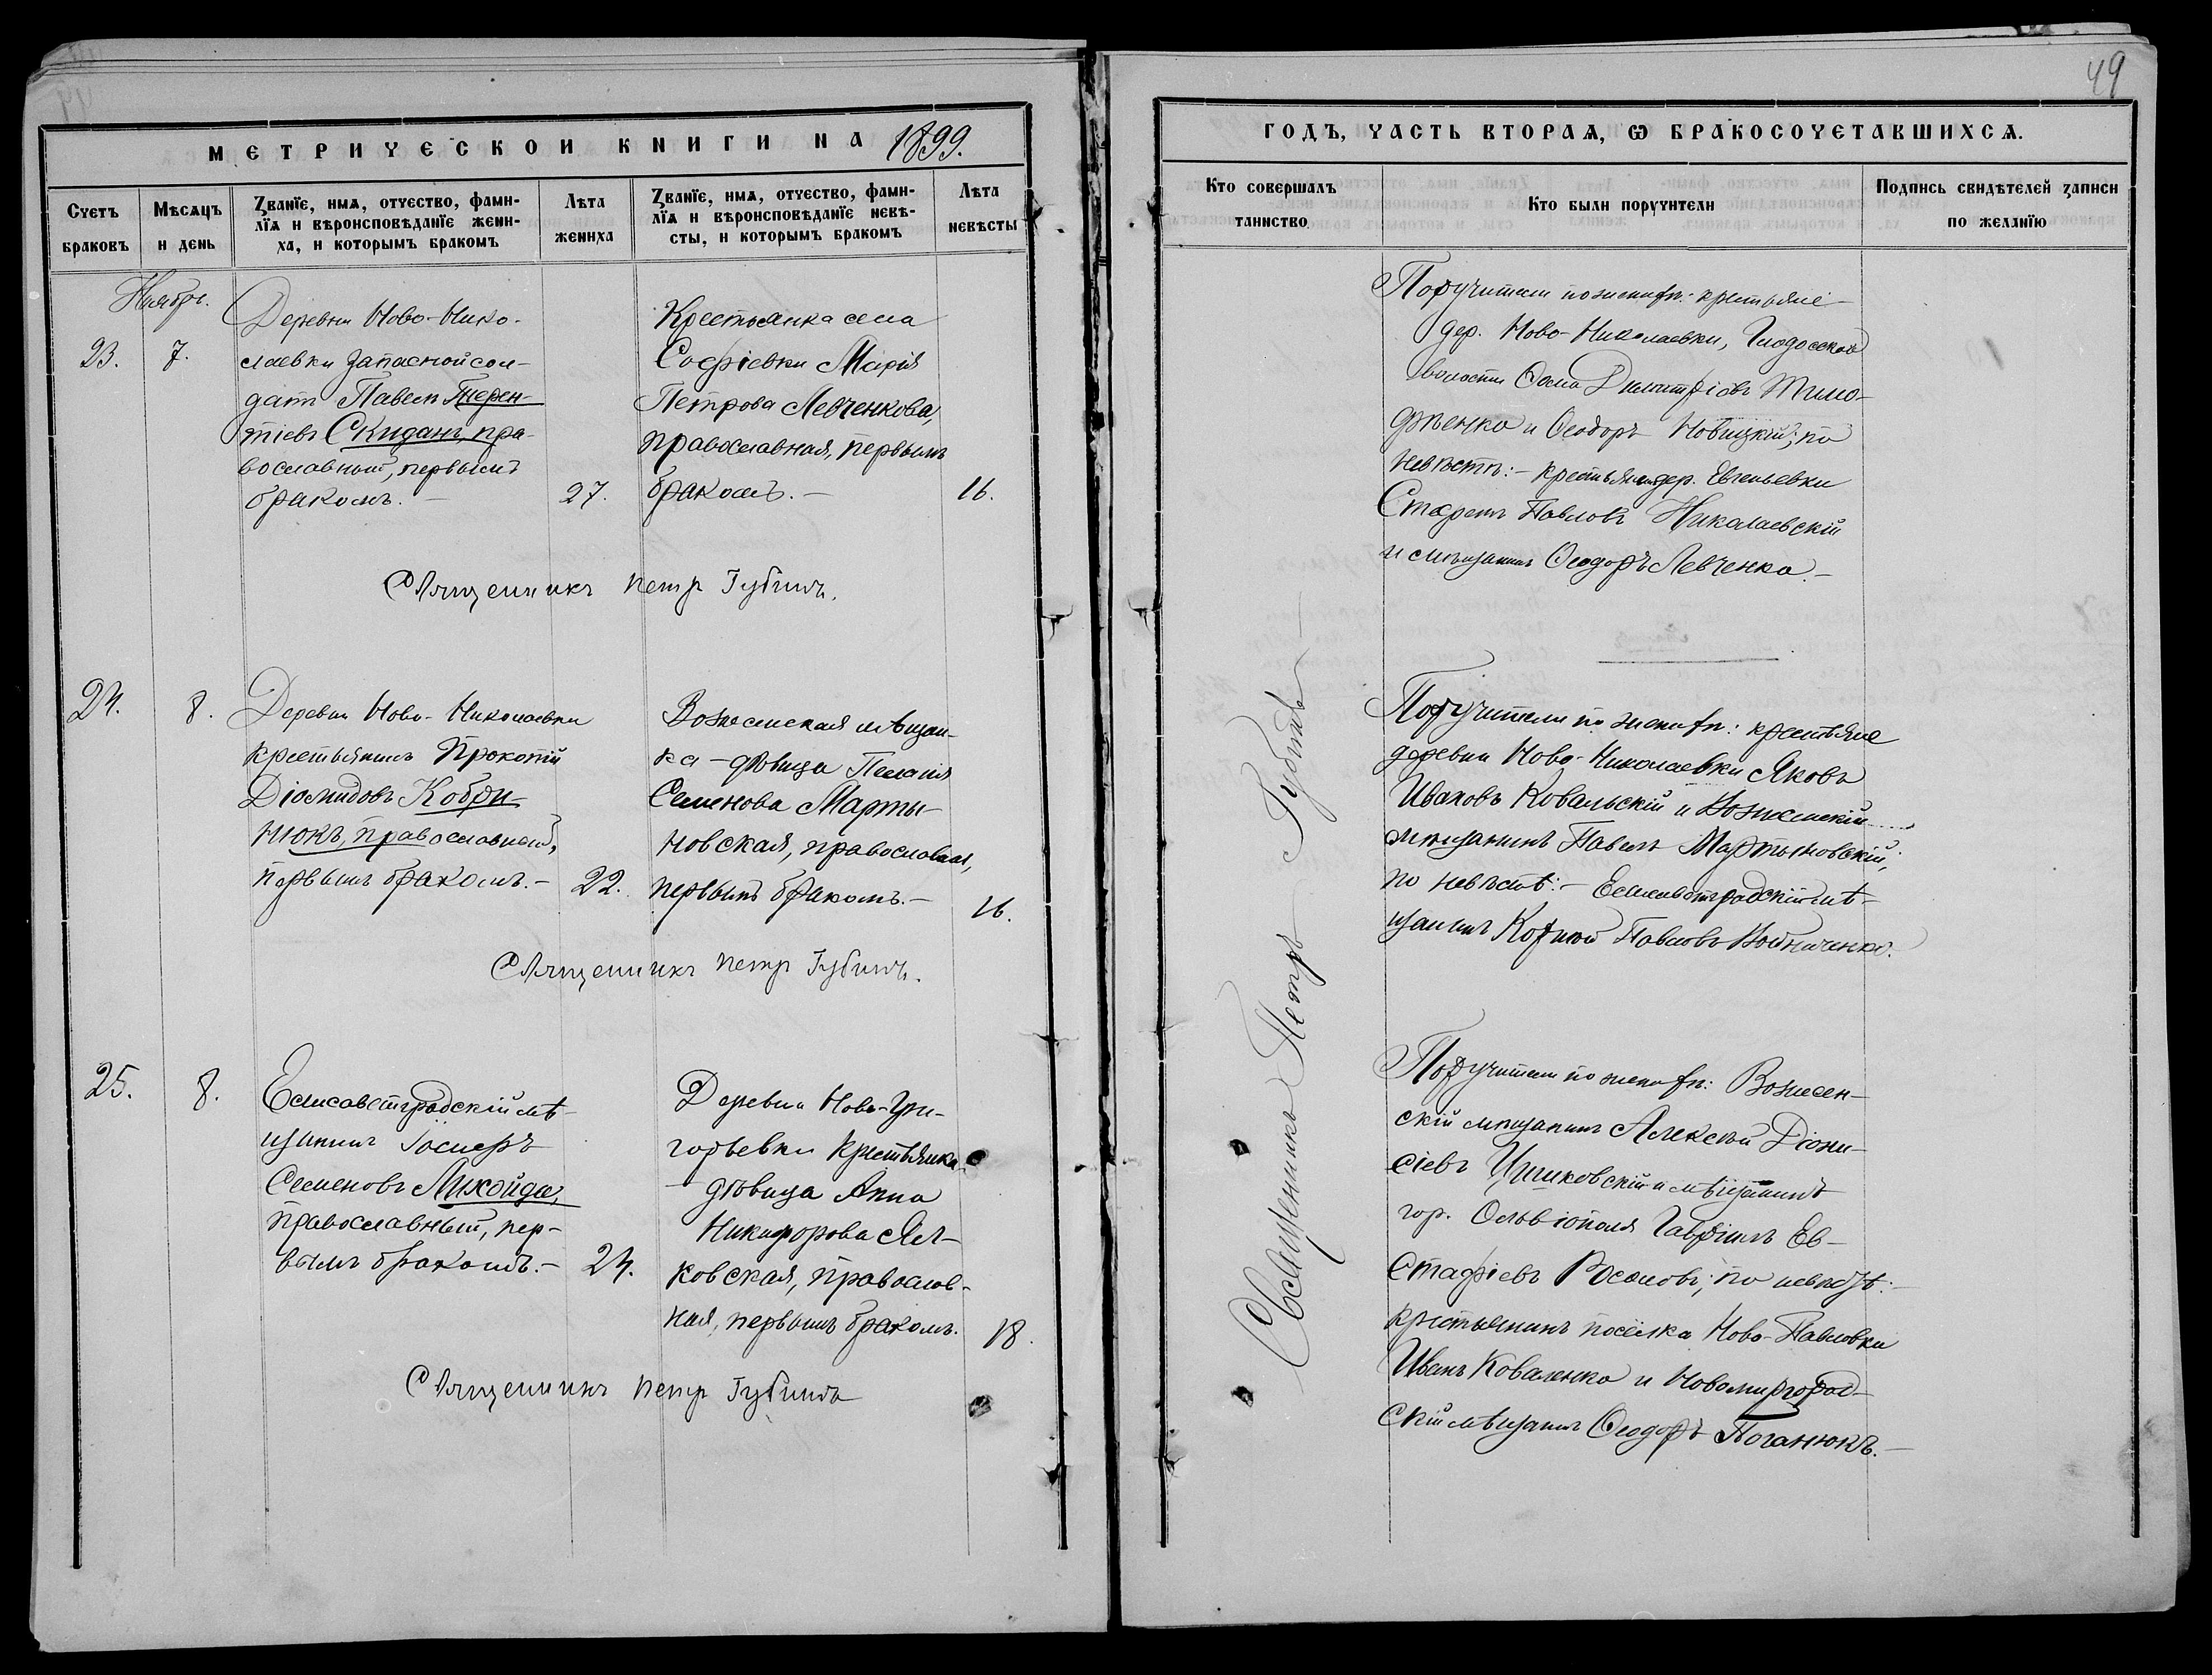 МЕТРИЧЕСКОЙ КНИГИ НА 1899.
Счетъ браковъ
Мѣсяцъ и день
Званїе, имя, отчество, фами-
лїя и вѣроисповѣданїе жени-
ха, и которымъ бракомъ
Лѣта жениха
Званїе, имя, отчество, фами-
лїя и вѣроисповѣданїе невѣ-
сты, и которымъ бракомъ
Лѣта невѣсты
Ноябрь.
23.
7.
Деревни Ново-Нико-
лаевки запасной сол-
датъ Павелъ Терен-
тіевъ Скиданъ, пра-
вославный, первымъ
бракомъ. —
27.
Крестьянка села
Софіевки Марія
Петрова Левченкова,
православная, первымъ
бракомъ. —
16.
Священникъ Петр Губинъ.
24.
8.
Деревни Ново-Николаевки
крестьянинъ Прокопій
Діомидовъ Кобри-
нюкъ, православный,
первымъ бракомъ. —
22.
Вознесенская мѣщан-
ка - дѣвица Пелагія
Семенова Марты-
новская, православная,
первымъ бракомъ. —
16.
Священникъ Петр Губинъ.
25.
8.
Елисаветградскій мѣ-
щанинъ Іосифъ
Семеновъ Лихойда,
православный, пер-
вымъ бракомъ. —
24.
Деревни Ново-Гри-
горьевки крестьянка
- дѣвица Анна
Никифорова Ял-
ковская, православ-
ная, первымъ бракомъ.
18.
Священникъ Петр Губинъ
49
ГОДЪ, ЧАСТЬ ВТОРАЯ, Ѡ БРАКОСОЧЕТАВШИХСЯ.
Кто совершалъ таинство
Кто были поручители
Подпись свидѣтелей записи
по желанїю
Священникъ Петръ Губинъ
Поручители по женихѣ: крестьяне
дер. Ново-Николаевки, Глодосской
волости Ѳома Димитріовъ
и Ѳеодоръ Новицкій; по
невѣстѣ: - крестьянинъ дер. Евгеньевки
Павловъ Николаевскій
и мѣщанинъ Ѳеодоръ Левченко. —
Поручители по женихѣ: крестьяне
деревни Ново-Николаевки Яковъ
Ивановъ Ковальскій и Вознесенскій
мѣщанинъ Павелъ Мартыновскій;
по невѣстѣ: - Елисаветградскій мѣ-
щанинъ Корнилій Павловъ Войниченко.
Поручители по женихѣ: Вознесен-
скій мѣщанинъ Алексѣй Діони-
сіевъ и мѣщанинъ
гор. Ольвіополя Гавріилъ Ев-
стафіевъ; по невѣстѣ: -
крестьянинъ посёлка Ново-Павловки
Иванъ Коваленко и Новомиргород-
скій мѣщанинъ Ѳеодоръ Поганюкъ. —